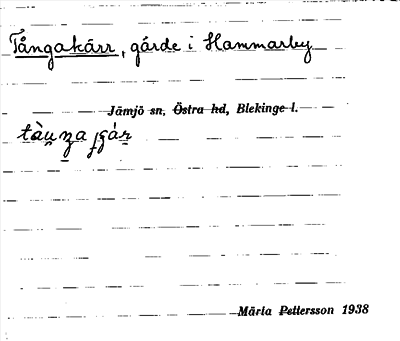 Tångakärr, gärde i Hammarby
Jämjö sn, Östra hd, Blekinge l.
Märta Pettersson 1938